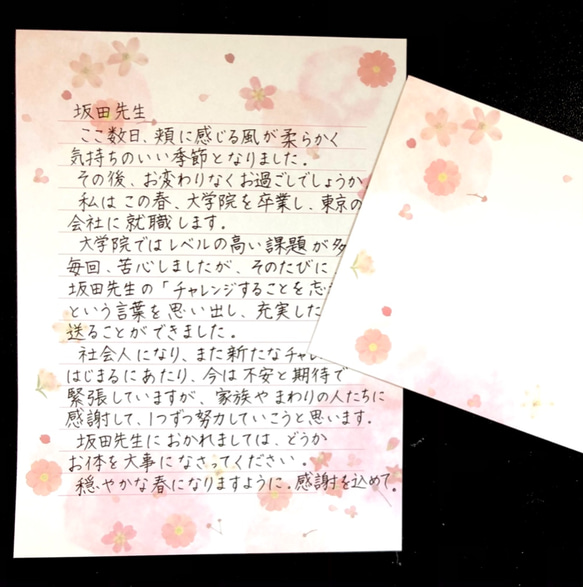 坂田先生
ここ数日、頬に感じる風が柔らかく
気持ちのいい季節となりました。
その後、お変わりなくお過ごしでしょうか
私はこの春、大学院を卒業し、東京の
会社に就職します。
大学院ではレベルの高い課題が多
毎回、苦心しましたが、そのたびに
坂田先生の「チャレンジすることを忘
という言葉を思い出し、充実した
送ることができました。
社会人になり、また新たなチャレ
はじまるにあたり、今は不安と期待で
緊張していますが、家族やまわりの人たちに
感謝して、1つずつ努力していこうと思います。
坂田先生におかれましては、どうか
お体を大事になさってください。
穏やかな春になりますように。感謝を込めて。